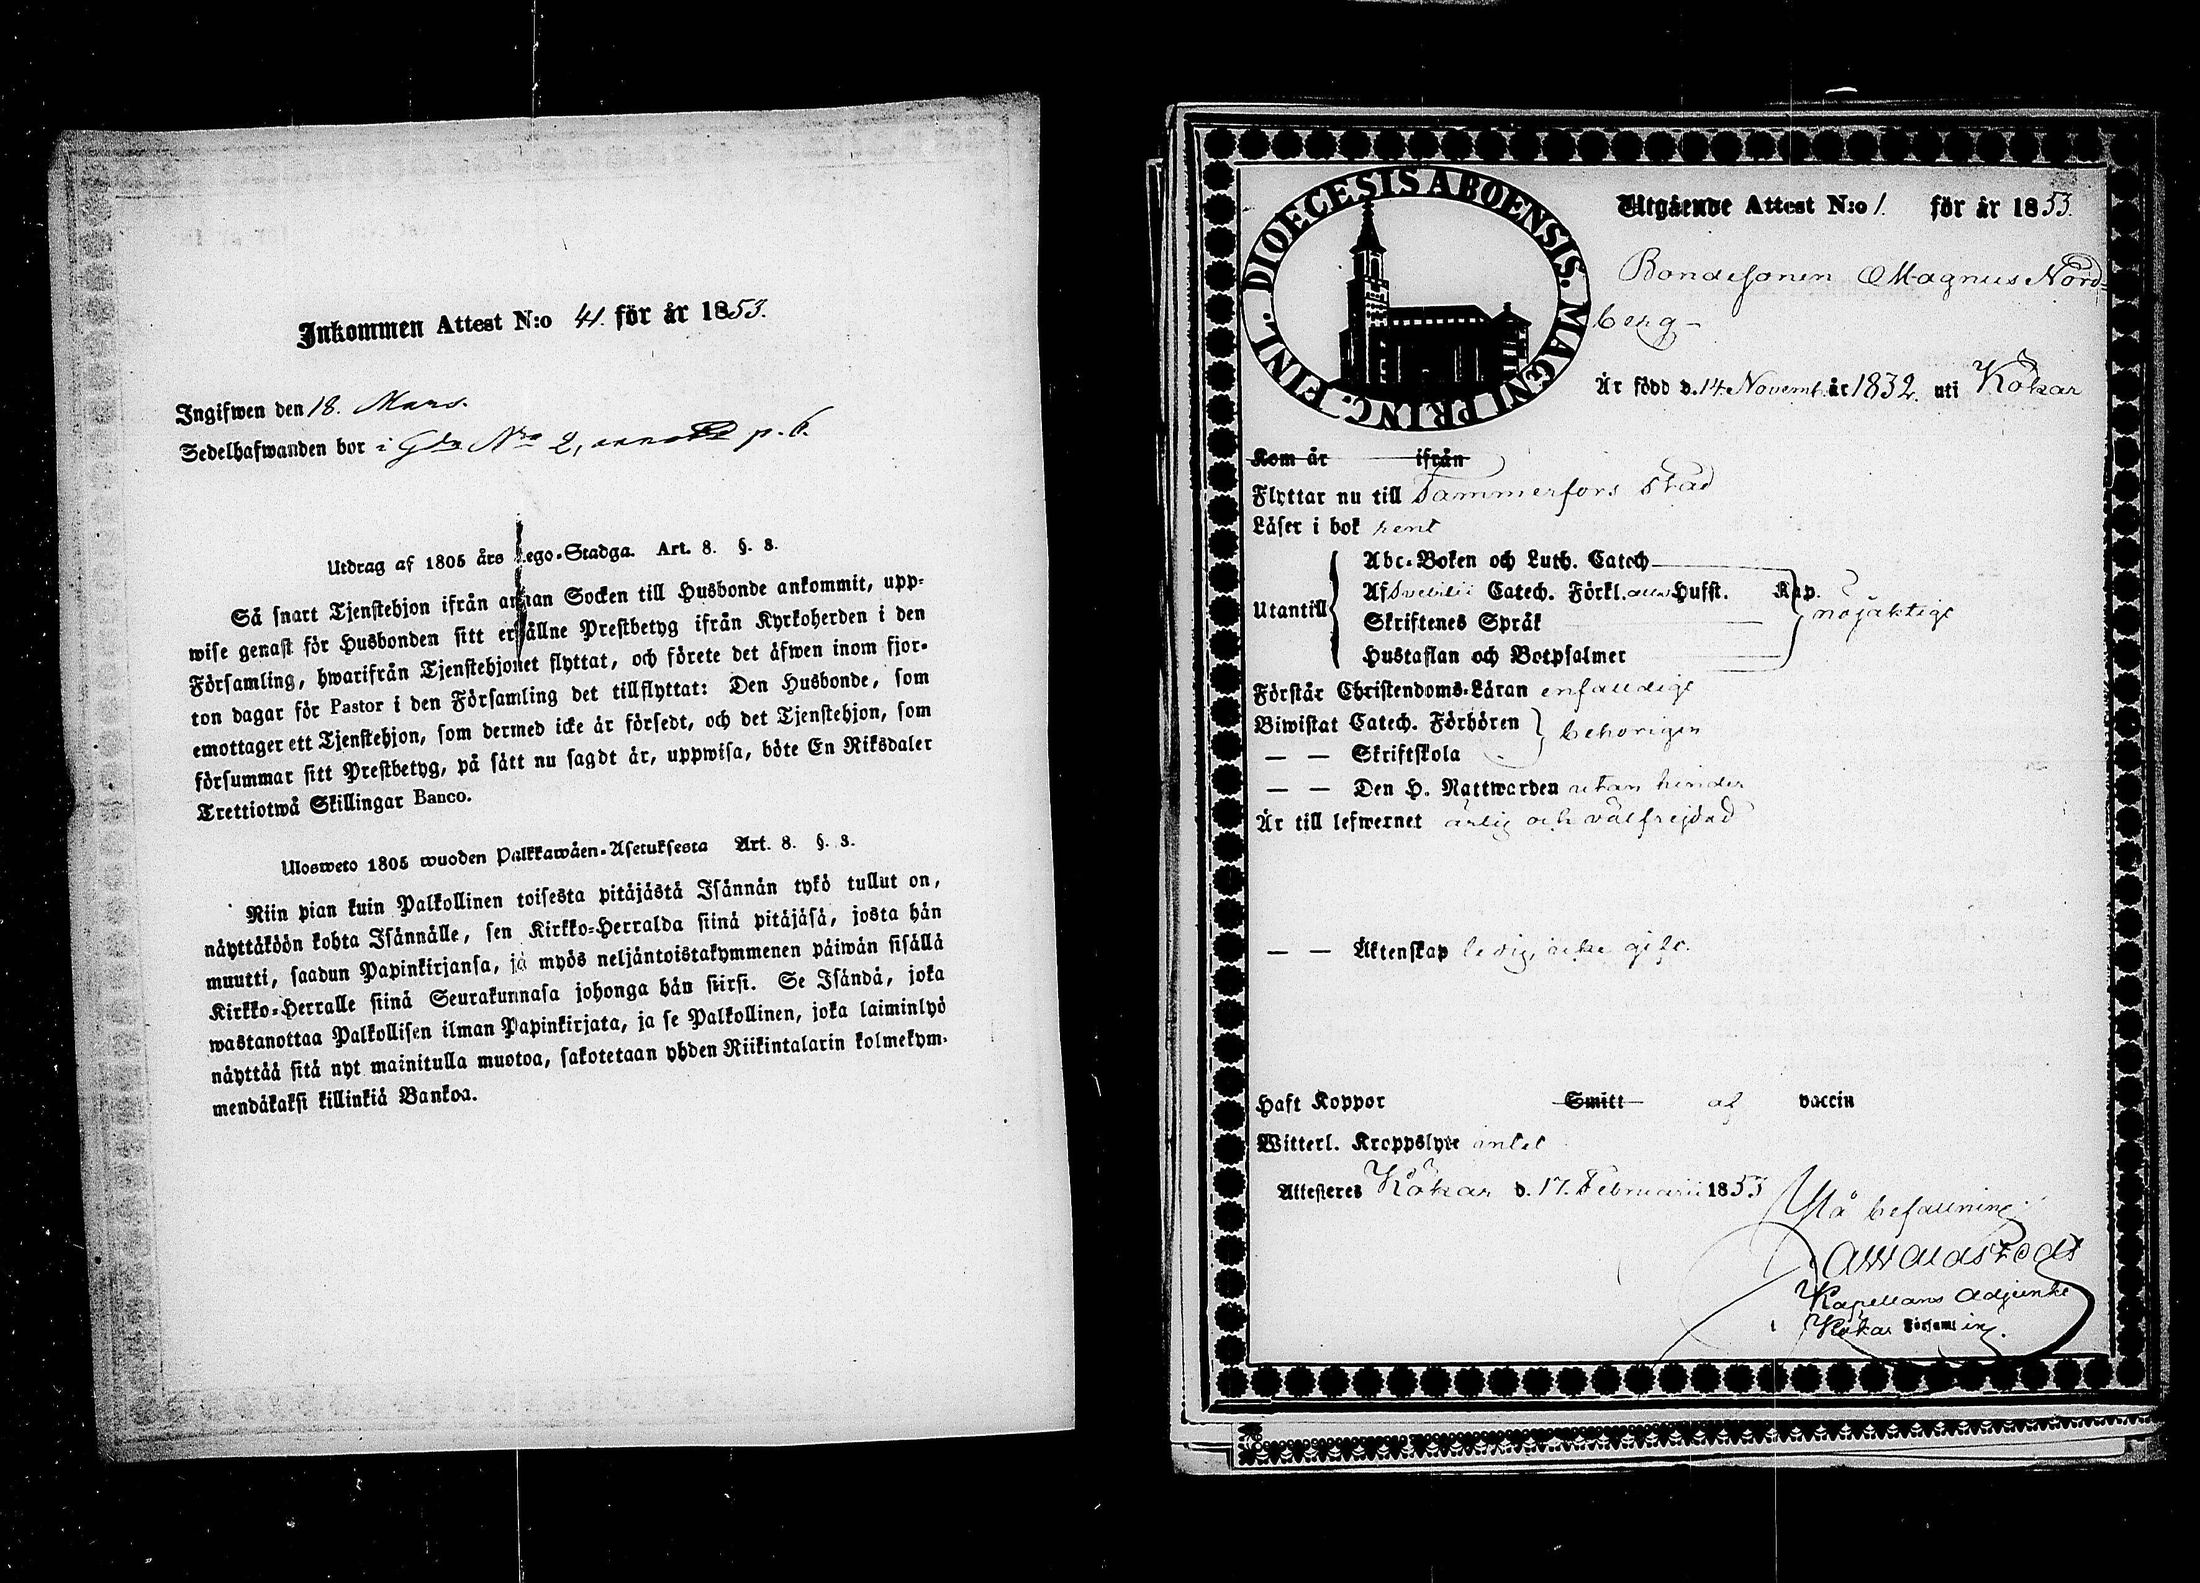 Inkommen Attest N:o 41. för år 1853.
Ingifwen den 18. Mars.
Sedelhafwanden bor i Gdn No 2, p. 6.
Utdrag af 1805 års Lego-Stadga. Art. 8. §. 8.
Så snart Tjenstehjon ifrån annan Socken till Husbonde ankommit, upp-
wise genast för Husbonden sitt erhållne Prestbetyg ifrån Kyrkoherden i den
Församling, hwarifrån Tjenstehjonet flyttat, och förete det äfwen inom fjor-
ton dagar för Pastor i den Församling det tillflyttat: Den Husbonde, som
emottager ett Tjenstehjon, som dermed icke är försedt, och det Tjenstehjon, som
försummar sitt Prestbetyg, på sätt nu sagdt är, uppwisa, böte En Riksdaler
Trettiotwå Skillingar Banco.
Ulosweto 1805 wuoden Palkkawäen-Asetuksesta Art. 8. §. 3.
Niin pian kuin Palkollinen toisesta pitäjästä Isännän tykö tullut on,
näyttäköön kohta Isännälle, sen Kirkko-Herralda siinä pitäjäsä, josta hän
muutti, saadun Papinkirjansa, ja myös neljäntoistakymmenen päiwän sisällä
Kirkko-Herralle siinä Seurakunnasa johonga hän siirsi. Se Isändä, joka
wastanottaa Palkollisen ilman Papinkirjata, ja se Palkollinen, joka laiminlyö
näyttää sitä nyt mainitulla muotoa, sakotetaan yhden Riikintalarin kolmekym-
mendäkaksi killinkiä Bankoa.
DIOECESIS ABOENSIS. MAGNI PRINC. FINL.
Utgående Attest N:o 1. för år 1853.
Bondesonen Magnus Nord-
berg
Är född d. 14 Novemb. år 1832. uti Kökar
Kom år ifrån
Flyttar nu till Tammerfors stad
Läser i bok rent
Utantill
Abc-Boken och Luth. Catech
Af Svebilii Catech. Förkl. Hufst. Kap.
Skriftenes Språk
Hustaflan och Botpsalmer
nöjaktigt
Förstår Christendoms-Läran enfaldigt
Biwistat Catech. Förhören
— — Skriftskola
behörigen
— — Den H. Nattwarden utan hinder
Är till lefwernet ärlig och välfrejdad
— — Äktenskap ledig, icke gift.
Haft Koppor Smitt af vaccin
Witterl. Kroppslyte intet
Attesteres Kökar d. 17. Februarii 1853
På befallning
Kapellans Adjunkt
i Kökar Församling.